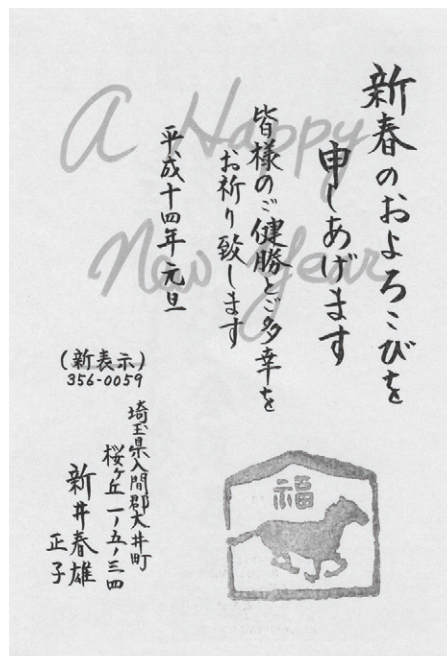 A Happy
New Year
新春のおよろこびを
申しあげます
皆様のご健勝とご多幸を
お祈り致します
平成十四年元旦
(新表示)
356-0059
埼玉県入間郡大井町
桜ヶ丘一ノ五ノ三四
新井春雄
正子
福